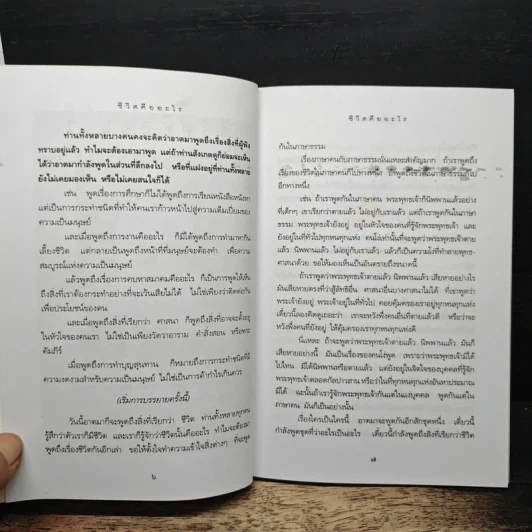 ชีวิตคืออะไร
ท่านทั้งหลายบางคนคงจะคิดว่าอาตมาพูดถึงเรื่องสิ่งที่ผู้ฟัง
ทราบอยู่แล้ว ทำไมจะต้องเอามาพูด แต่ถ้าท่านสังเกตดูก็ย่อมจะเห็น
ได้ว่าอาตมากำลังพูดในส่วนที่ลึกลงไป หรือที่แฝงอยู่ที่ท่านทั้งหลาย
ยังไม่เคยมองเห็น หรือไม่เคยสนใจก็ได้
เช่น พูดเรื่องการศึกษาก็ไม่ได้พูดถึงการเรียนหนังสือหนังหา
แต่เป็นการกระทำชนิดที่ทำให้คนเราก้าวหน้าไปสู่ความเต็มเปี่ยมของ
ความเป็นมนุษย์
และเมื่อพูดถึงเรื่องการงานคืออะไร ก็มิได้พูดถึงการทำมาหากิน
เลี้ยงชีวิต แต่กลายเป็นพูดถึงหน้าที่ที่มนุษย์จะต้องทำ เพื่อความ
สมบูรณ์แห่งความเป็นมนุษย์
แล้วเมื่อพูดถึงเรื่องการคบหาสมาคมคืออะไร ก็เป็นการพูดให้เห็น
ถึงสิ่งที่เราต้องกระทำอย่างที่จะเว้นเสียไม่ได้ ไม่ใช่เพียงว่าติดต่อกัน
เพื่อประโยชน์ของตน
และเมื่อพูดถึงสิ่งที่เรียกว่า ศาสนา ก็หมายถึงสิ่งที่อาจจะตั้งอยู่
ในหัวใจของคนเรา ไม่ใช่เป็นเพียงวัดวาอาราม คำสั่งสอน หรือพระ
คัมภีร์
เมื่อพูดถึงการทำบุญสุนทาน ก็หมายถึงการกระทำชนิดที่มี
ความงดงามสำหรับความเป็นมนุษย์ ไม่ใช่เป็นการค้ากำไรเกินควร
(เริ่มการบรรยายครั้งนี้)
วันนี้อาตมาก็จะพูดถึงสิ่งที่เรียกว่า ชีวิต ท่านทั้งหลายทุกคน
รู้สึกว่าตัวเราก็มีชีวิต และเราก็รู้จักว่าชีวิตนั้นคืออะไร ทำไมจะต้องมา
พูดถึงเรื่องชีวิตกันอีกเล่า ขอให้ตั้งใจทำความเข้าใจสิ่งต่างๆ ที่จะพูด
๖
ชีวิตคืออะไร
กันในภาษาธรรม
เรื่องภาษาคนกับภาษาธรรมนั่นแหละสำคัญมาก ถ้าเราพูดถึง
เรื่องของชีวิตในภาษาคนก็ไปทางหนึ่ง ถ้าพูดถึงชีวิตในภาษาธรรมก็ไป
อีกทางหนึ่ง
เช่น ถ้าเราพูดกันในภาษาคน พระพุทธเจ้าก็นิพพานแล้วอย่าง
ที่เด็กๆ เขาเรียกว่าตายแล้ว ไม่อยู่กับเราแล้ว แต่ถ้าเราพูดกันในภาษา
ธรรม พระพุทธเจ้ายังอยู่ อยู่ในหัวใจของคนที่รู้จักพระพุทธเจ้า และ
ยังอยู่ในที่ทั่วไปทุกหนทุกแห่ง คนโง่เท่านั้นที่จะพูดว่าพระพุทธเจ้าตาย
แล้ว นิพพานแล้ว ไม่อยู่กับเราแล้ว แล้วก็เป็นความโง่ที่ทำลายพุทธ-
ศาสนาด้วย ขอให้มองเห็นเป็นอันตรายถึงขนาดนี้
ถ้าเราพูดว่าพระพุทธเจ้าตายแล้ว นิพพานแล้ว เสียหายอย่างไร
มันเสียหายตรงที่ว่าสู้ลัทธิอื่น ศาสนาอื่นบางศาสนาไม่ได้ ที่เขาพูดว่า
พระเจ้ายังอยู่ พระเจ้าอยู่ในที่ทั่วไป คอยคุ้มครองเราอยู่ทุกหนทุกแห่ง
เดี๋ยวนี้ลองคิดดูเถอะว่า เราจะหวังพึ่งคนอื่นที่ตายแล้วดี หรือว่าจะ
หวังพึ่งคนที่ยังอยู่ ให้คุ้มครองเราทุกหนทุกแห่งดี
นี่แหละ ถ้าจะพูดว่าพระพุทธเจ้าตายแล้ว นิพพานแล้ว มันก็
เสียหายอย่างนี้ มันเป็นเรื่องของคนโง่พูด เพราะว่าพระพุทธเจ้ามิได้
ไปไหน มิได้นิพพานหรือตายแล้ว แต่ยังอยู่ในจิตใจของบุคคลที่รู้จัก
พระพุทธเจ้าตลอดกัลปาวสาน หรือว่าในที่ทุกหนทุกแห่งอันหาประมาณ
มิได้ ฉะนั้นถ้าเรารู้จักพระพุทธเจ้ากันในแง่บุคคล พูดกันแต่ใน
ภาษาคน มันก็เป็นอย่างนั้น
เรื่องใครเป็นใครนี้ อาตมาจะพูดกันอีกสักชุดหนึ่ง เดี๋ยวนี้
กำลังพูดชุดที่ว่าอะไรเป็นอะไร เดี๋ยวนี้กำลังพูดถึงสิ่งที่เรียกว่าชีวิต
๗